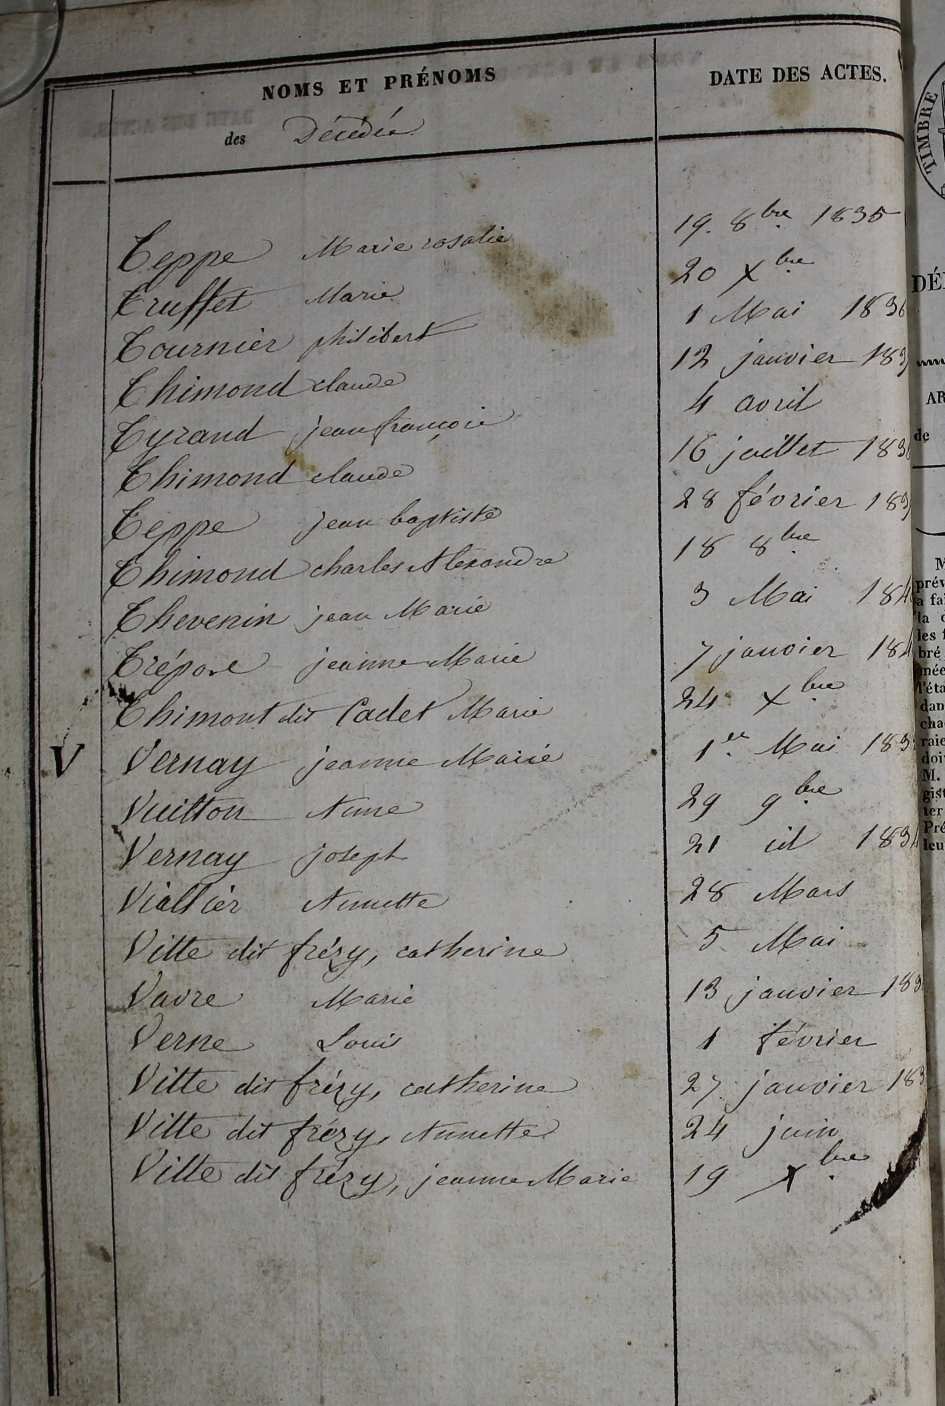 NOMS ET PRÉNOMS DATE DES ACTES.
des Décédés
Teppe Marie rosalie 19. 8bre. 1835
Truffet Marie 20 Xbre
Tournier philibert 1 Mai 1836
Thimond claude 12 janvier 183
Tyrand jean françois 4 avril
Thimond claude 16 juillet 183
Teppe jean baptiste 28 février 183
Thimond charles Alexandre 18 8bre
Thevenin jean Marie 3 Mai 184
Trépore jeanne Marie 7 janvier 184
Thimont dit Cadet Marie 24 Xbre
V Vernay jeanne Marie 1er Mai 183
Vuitton Anne 29 9bre
Vernay joseph 21 id 183
Viallier Annette 28 Mars
Vitte dit frézy, catherine 5 Mai
Vavre Marie 13 janvier 183
Verne Louis 1 février
Vitte dit frézy, catherine 27 janvier 183
Vitte dit frézy, Annette 24 juin
Vitte dit frézy, jeanne Marie 19 Xbre
TIMBRE